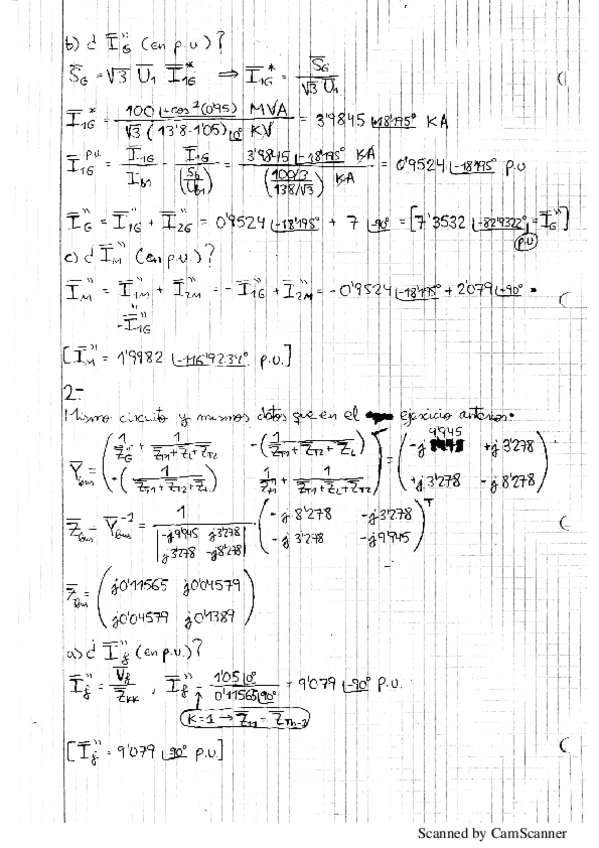 b) ¿ I̅"G (en p.u)?
S̅G = √3 U̅1 I̅1G* ⇒ I̅1G* = S̅G / (√3 U̅1)
I̅1G* = 100 ∠+cos⁻¹(0'95) MVA / (√3 (13'8·1'05)∠0° KV) = 3'9845 ∠-18'195° KA
I̅1G^p.u. = I̅1G / Ib1 = I̅1G / (Sb/Ub1) = 3'9845 ∠-18'195° KA / ((100/3)/(138/√3) KA) = 0'9524 ∠-18'195° p.u
I̅"G = I̅"1G + I̅"2G = 0'9524 ∠-18'195° + 7 ∠-90° = [7'3532 ∠-82'9322° = I̅"G]
p.u
c) ¿ I̅"M (en p.u.)?
I̅"M = I̅"1M + I̅"2M = - I̅"1G + I̅"2M = -0'9524 ∠-18'195° + 2'079 ∠-90°
-I̅"1G
[I̅"M = 1'9982 ∠-116'9234° p.u.]
2-
Mismo circuito y mismos datos que en el ejercicio anterior.
Y̅bus = ( 1/Z̅"G + 1/(Z̅T1+Z̅L+Z̅T2) -(1/(Z̅T1+Z̅T2+Z̅L)) ; -(1/(Z̅T1+Z̅T2+Z̅L)) 1/Z̅"M + 1/(Z̅T1+Z̅L+Z̅T2) ) = ( -j 9'945 +j 3'278 ; +j 3'278 -j 8'278 )
Z̅bus = Y̅bus⁻¹ = 1 / | -j9'945 j3'278 ; j3'278 -j8'278 | · ( -j 8'278 -j3'278 ; -j 3'278 -j9'945 )^T
Z̅bus = ( j0'11565 j0'04579 ; j0'04579 j0'1389 )
a) ¿ I̅"f (en p.u.)?
I̅"f = V̅f / Z̅KK , I̅"f = 1'05∠0° / 0'11565∠90° = 9'079 ∠-90° p.u.
K=1 → Z̅11 = Z̅Th-1
[I̅"f = 9'079 ∠-90° p.u]
Scanned by CamScanner